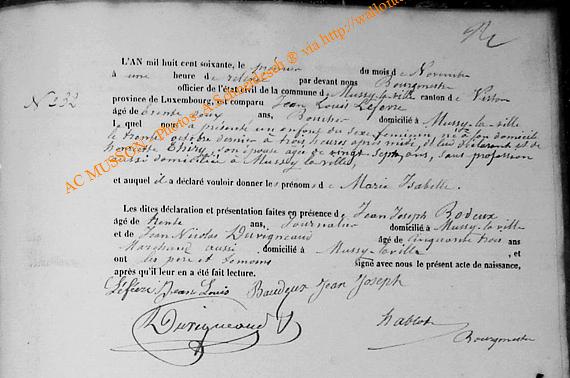 N° 232
L'AN mil huit cent soixante, le premier du mois de Novembre
à une heure de relevée par devant nous Bourgmestre
officier de l'état civil de la commune de Mussy-la-ville canton de Virton
province de Luxembourg est comparu Jean Louis Lefèvre
âgé de trente deux ans, domicilié à Mussy-la-ville
Lequel nous a présenté un enfant du sexe féminin, né à son domicile
le trente octobre dernier à trois heures après midi, de lui déclarant et de
Thiry, son épouse âgée de vingt sept ans, sans profession
aussi domiciliée à Mussy-la-ville
et auquel il a déclaré vouloir donner les prénoms de Marie Isabelle.
Les dites déclaration et présentation faites en présence de Jean Joseph Bodeux
âgé de trente ans, Journalier domicilié à Mussy-la-ville
et de Jean Nicolas Duvigneaud âgé de cinquante trois ans
Marchand aussi domicilié à Mussy-la-ville, et
ont les père et témoins signé avec nous le présent acte de naissance,
après qu'il leur en a été fait lecture.
Léfèvre Jean Louis Baudeux Jean Joseph
Duvigneaud
Bourgmestre
AC MUSSON - Photos: A. Schoedesch ® via http://wallon